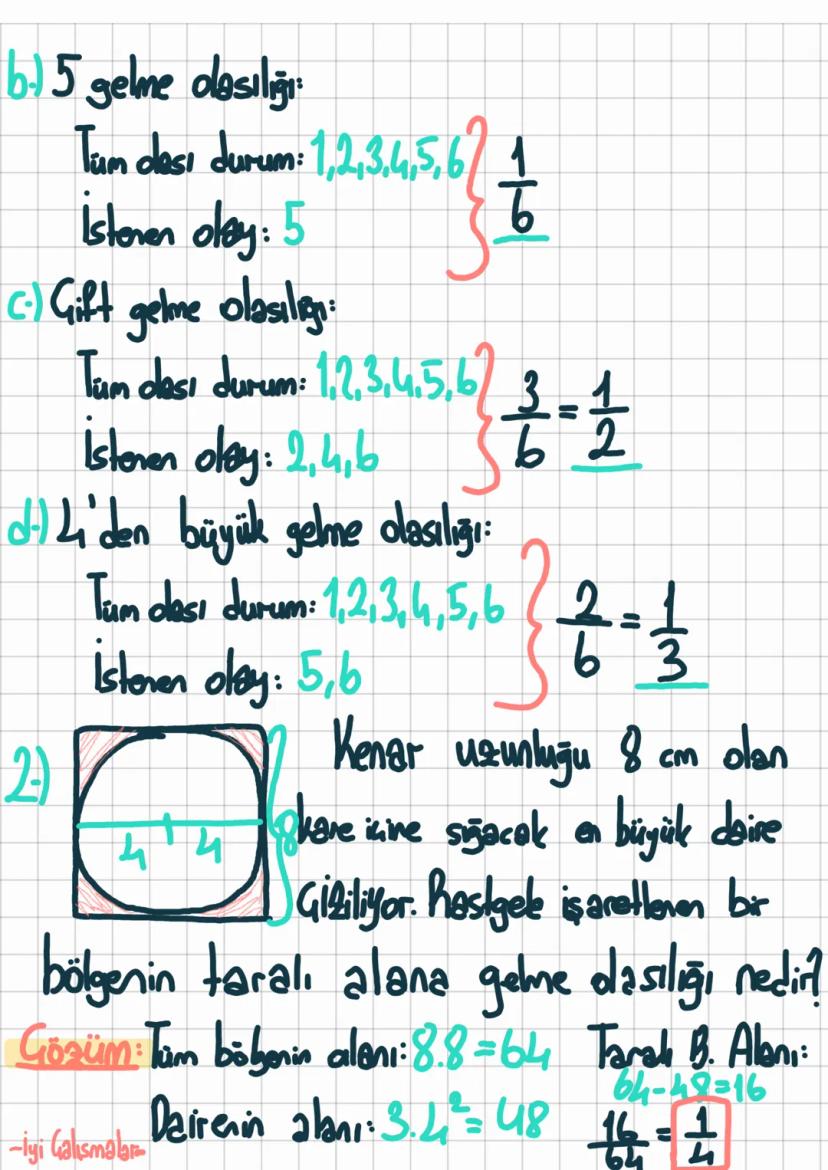 b.) 5 gelme olasılığı:
Tüm olası durum: 1,2,3,4,5,6
İstenen olay: 5
1/6
c.) Çift gelme olasılığı:
Tüm olası durum: 1,2,3,4,5,6
İstenen olay: 2,4,6
3/6 = 1/2
d.) 4'den büyük gelme olasılığı:
Tüm olası durum: 1,2,3,4,5,6
İstenen olay: 5,6
2/6 = 1/3
2.) Kenar uzunluğu 8 cm olan
4 4 8
kare içine sığacak en büyük daire
Çiziliyor. Rastgele işaretlenen bir
bölgenin taralı alana gelme olasılığı nedir?
Çözüm: Tüm bölgenin alanı: 8.8=64
Taralı B. Alanı:
64-48=16
Dairenin alanı: 3.4²=48
16/64 = 1/4
-İyi Çalışmalar-